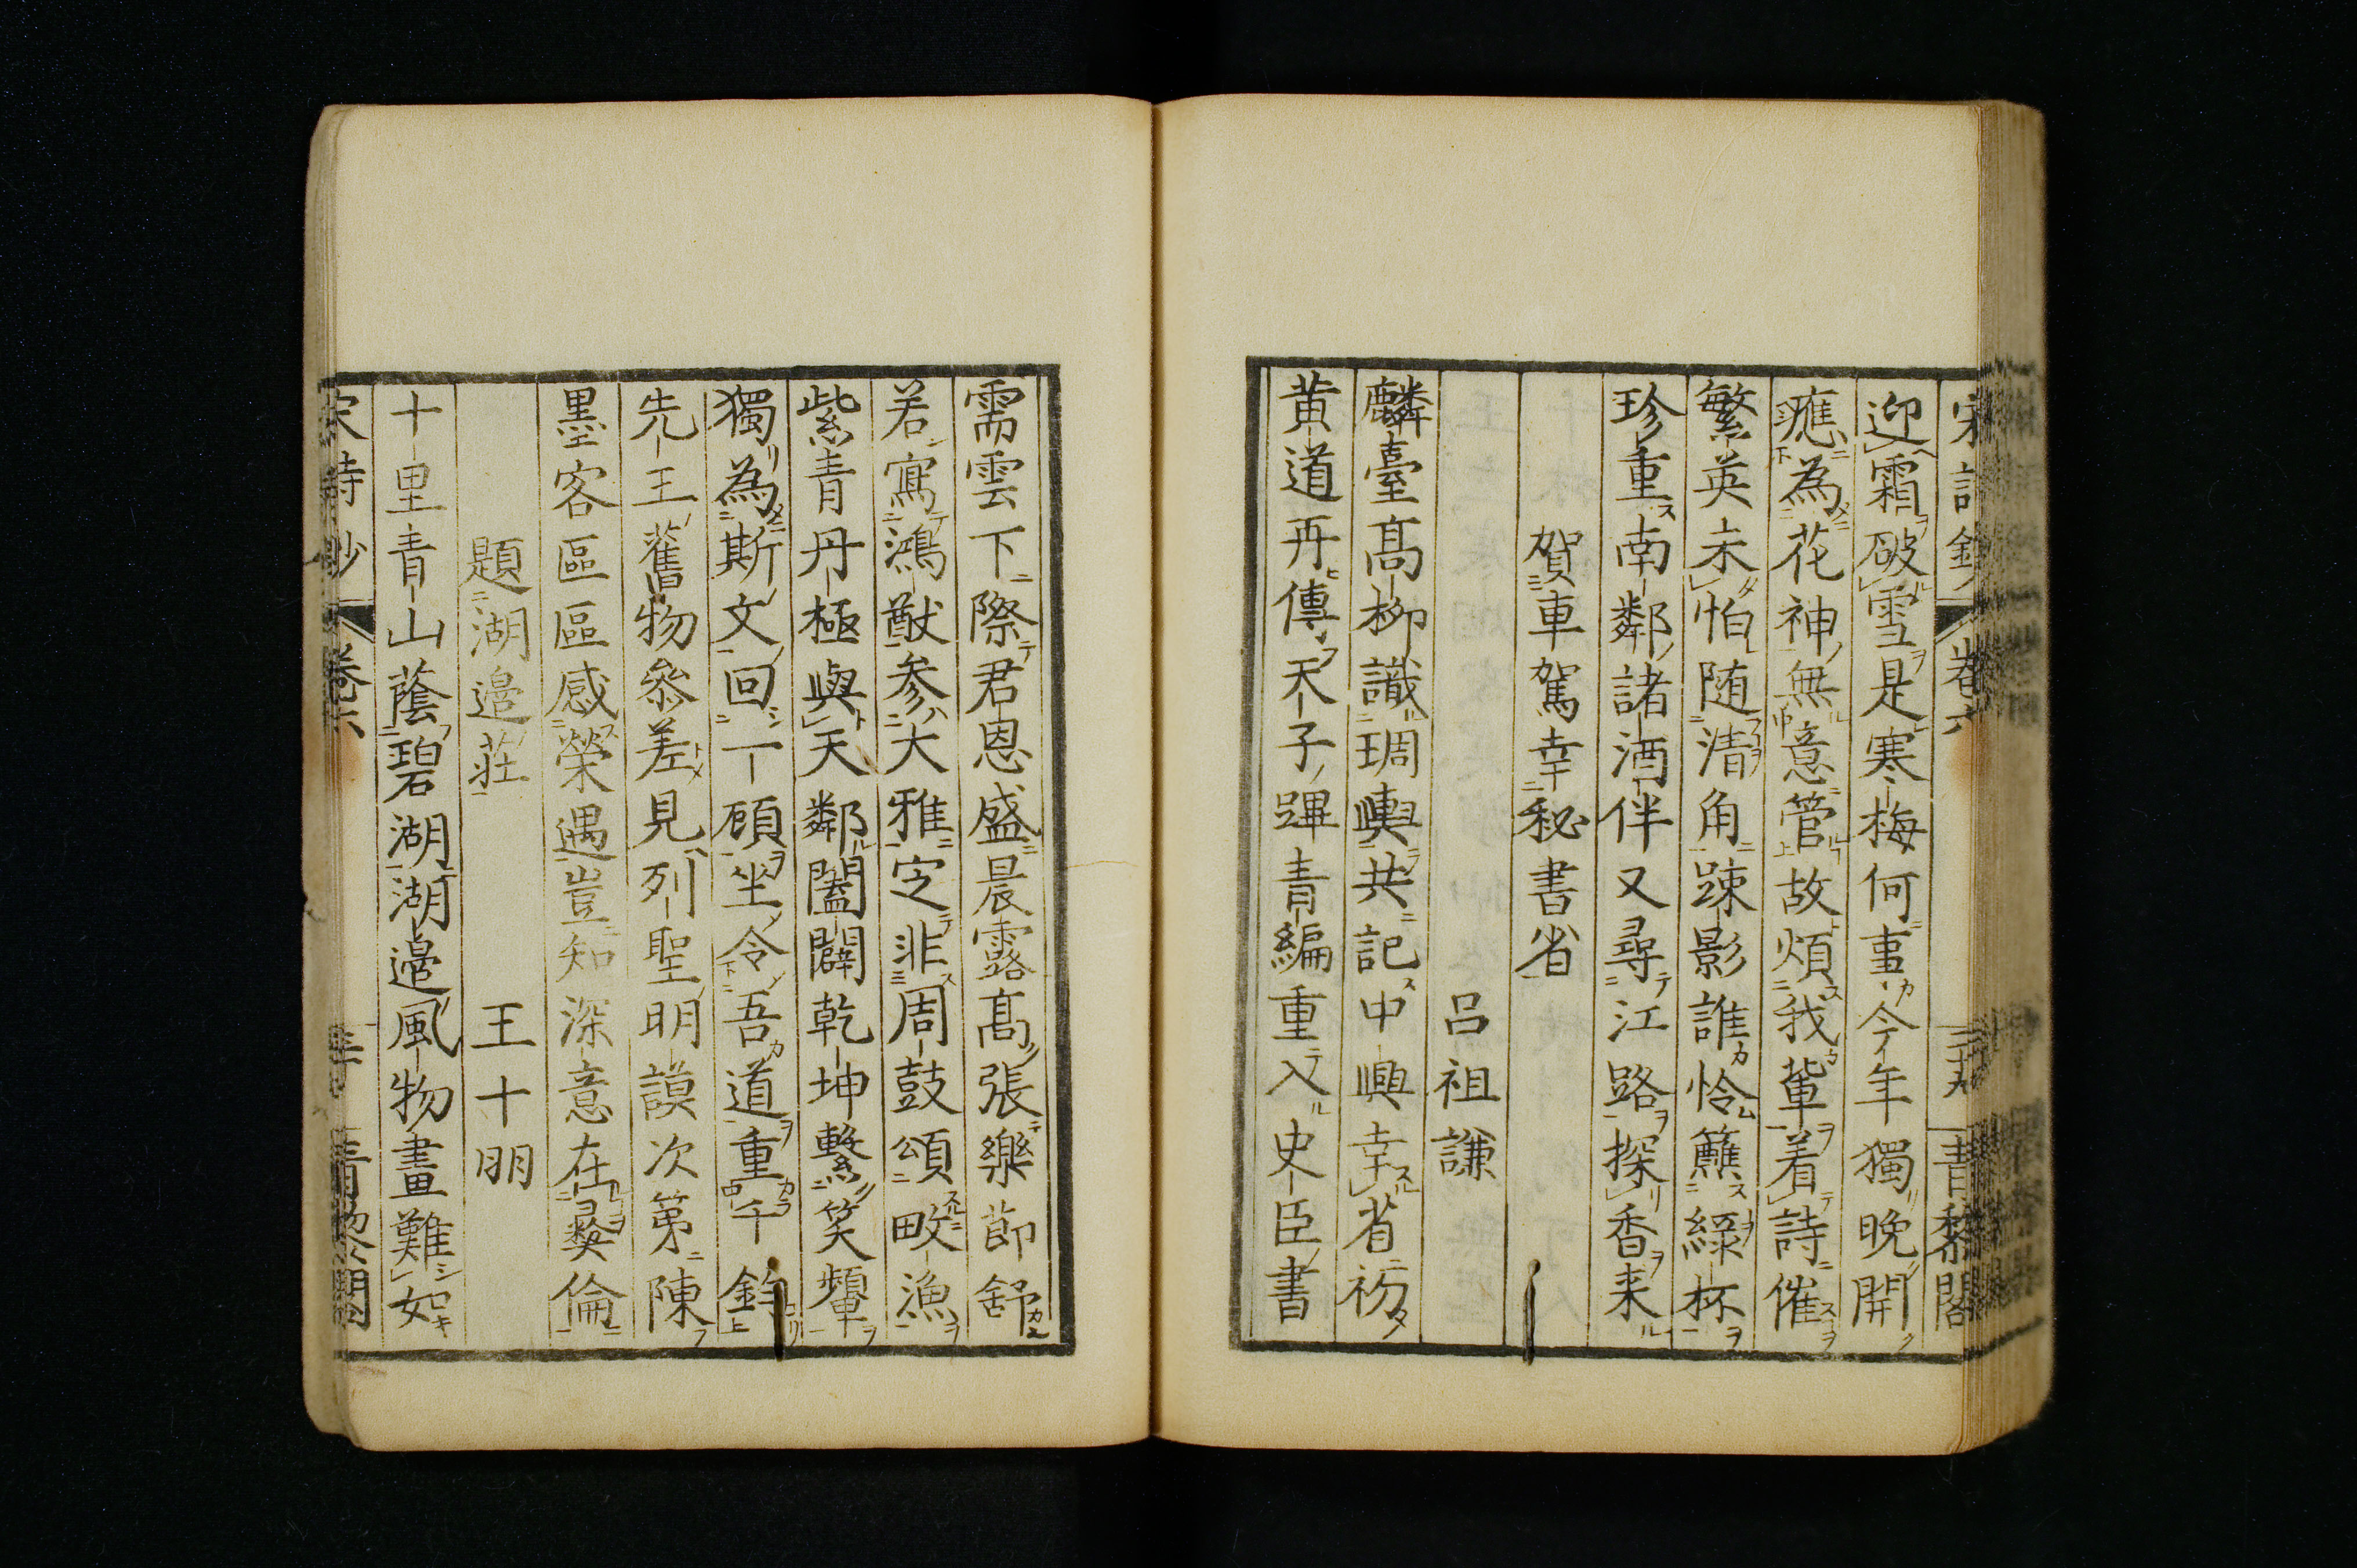 宋詩鈔 卷六 三十九 青黎閣
迎霜破雪是寒梅何事今年獨晚開
應為花神無意管故煩我輩着詩催
繁英未怕随清角踈影誰怜蘸綠杯
珍重南鄰諸酒伴又尋江路探香来
賀車駕幸秘書省
呂祖謙
麟臺髙柳識琱輿共記中興幸省初
黄道再傳天子蹕青編重入史臣書
需雲下際君恩盛晨露髙張樂莭舒
若寫鴻猷参大雅定非周鼓頌畋漁
紫青丹極與天鄰闔闢乾坤繫笑顰
獨為斯文回一顧坐令吾道重千鈞
先王舊物參差見列聖明謨次第陳
墨客區區感榮遇豈知深意在彝倫
題湖邉荘
王十朋
十里青山蔭碧湖湖邉風物畫難如
宋詩鈔 卷六 青黎閣